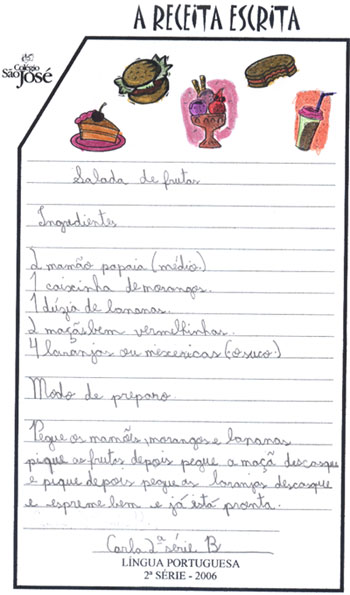 A RECEITA ESCRITA
Colégio
São José
Salada de frutas
Ingredientes
2 mamão papaia (médio)
1 caixinha de morangos.
1 dúzia de bananas.
2 maçãs bem vermelhinhas.
4 laranjas ou mexericas (o suco)
Modo de preparo
Pegue os mamões, morangos e bananas
pique as frutas depois pegue a maçã descasque
e pique depois pegue as laranjas descasque
e esprema bem e já está pronta.
Carla 2ª série B
LÍNGUA PORTUGUESA
2ª SÉRIE - 2006